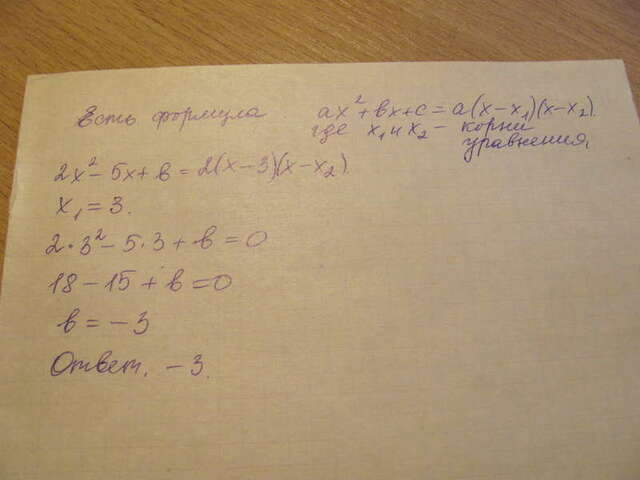 Есть формула ax²+bx+c=a(x-x₁)(x-x₂).
где x₁ и x₂ - корни
уравнения,
2x²-5x+b=2(x-3)(x-x₂).
x₁=3.
2·3²-5·3+b=0
18-15+b=0
b=-3
Ответ. -3.